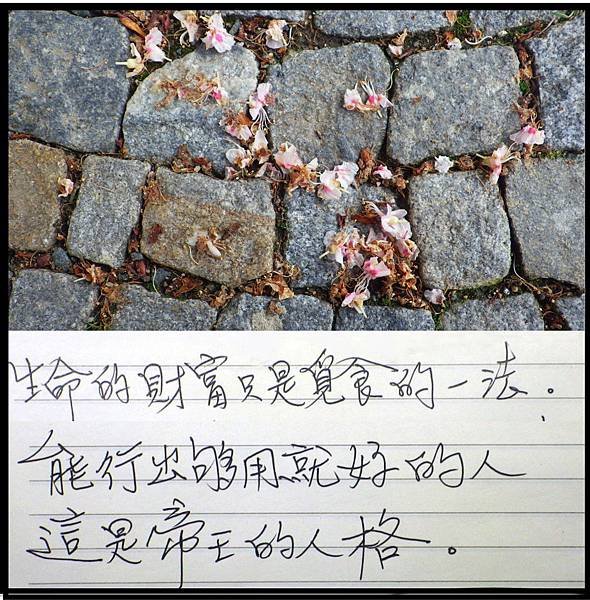 生命的財富只是覓食的一法.
能行出够用就好的人
這是帝王的人格。